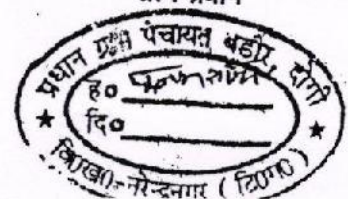 प्रधान ग्राम पंचायत बडीर, दोगी
ह०
दि०
वि०ख०-नरेन्द्रनगर ( टि०ग० )